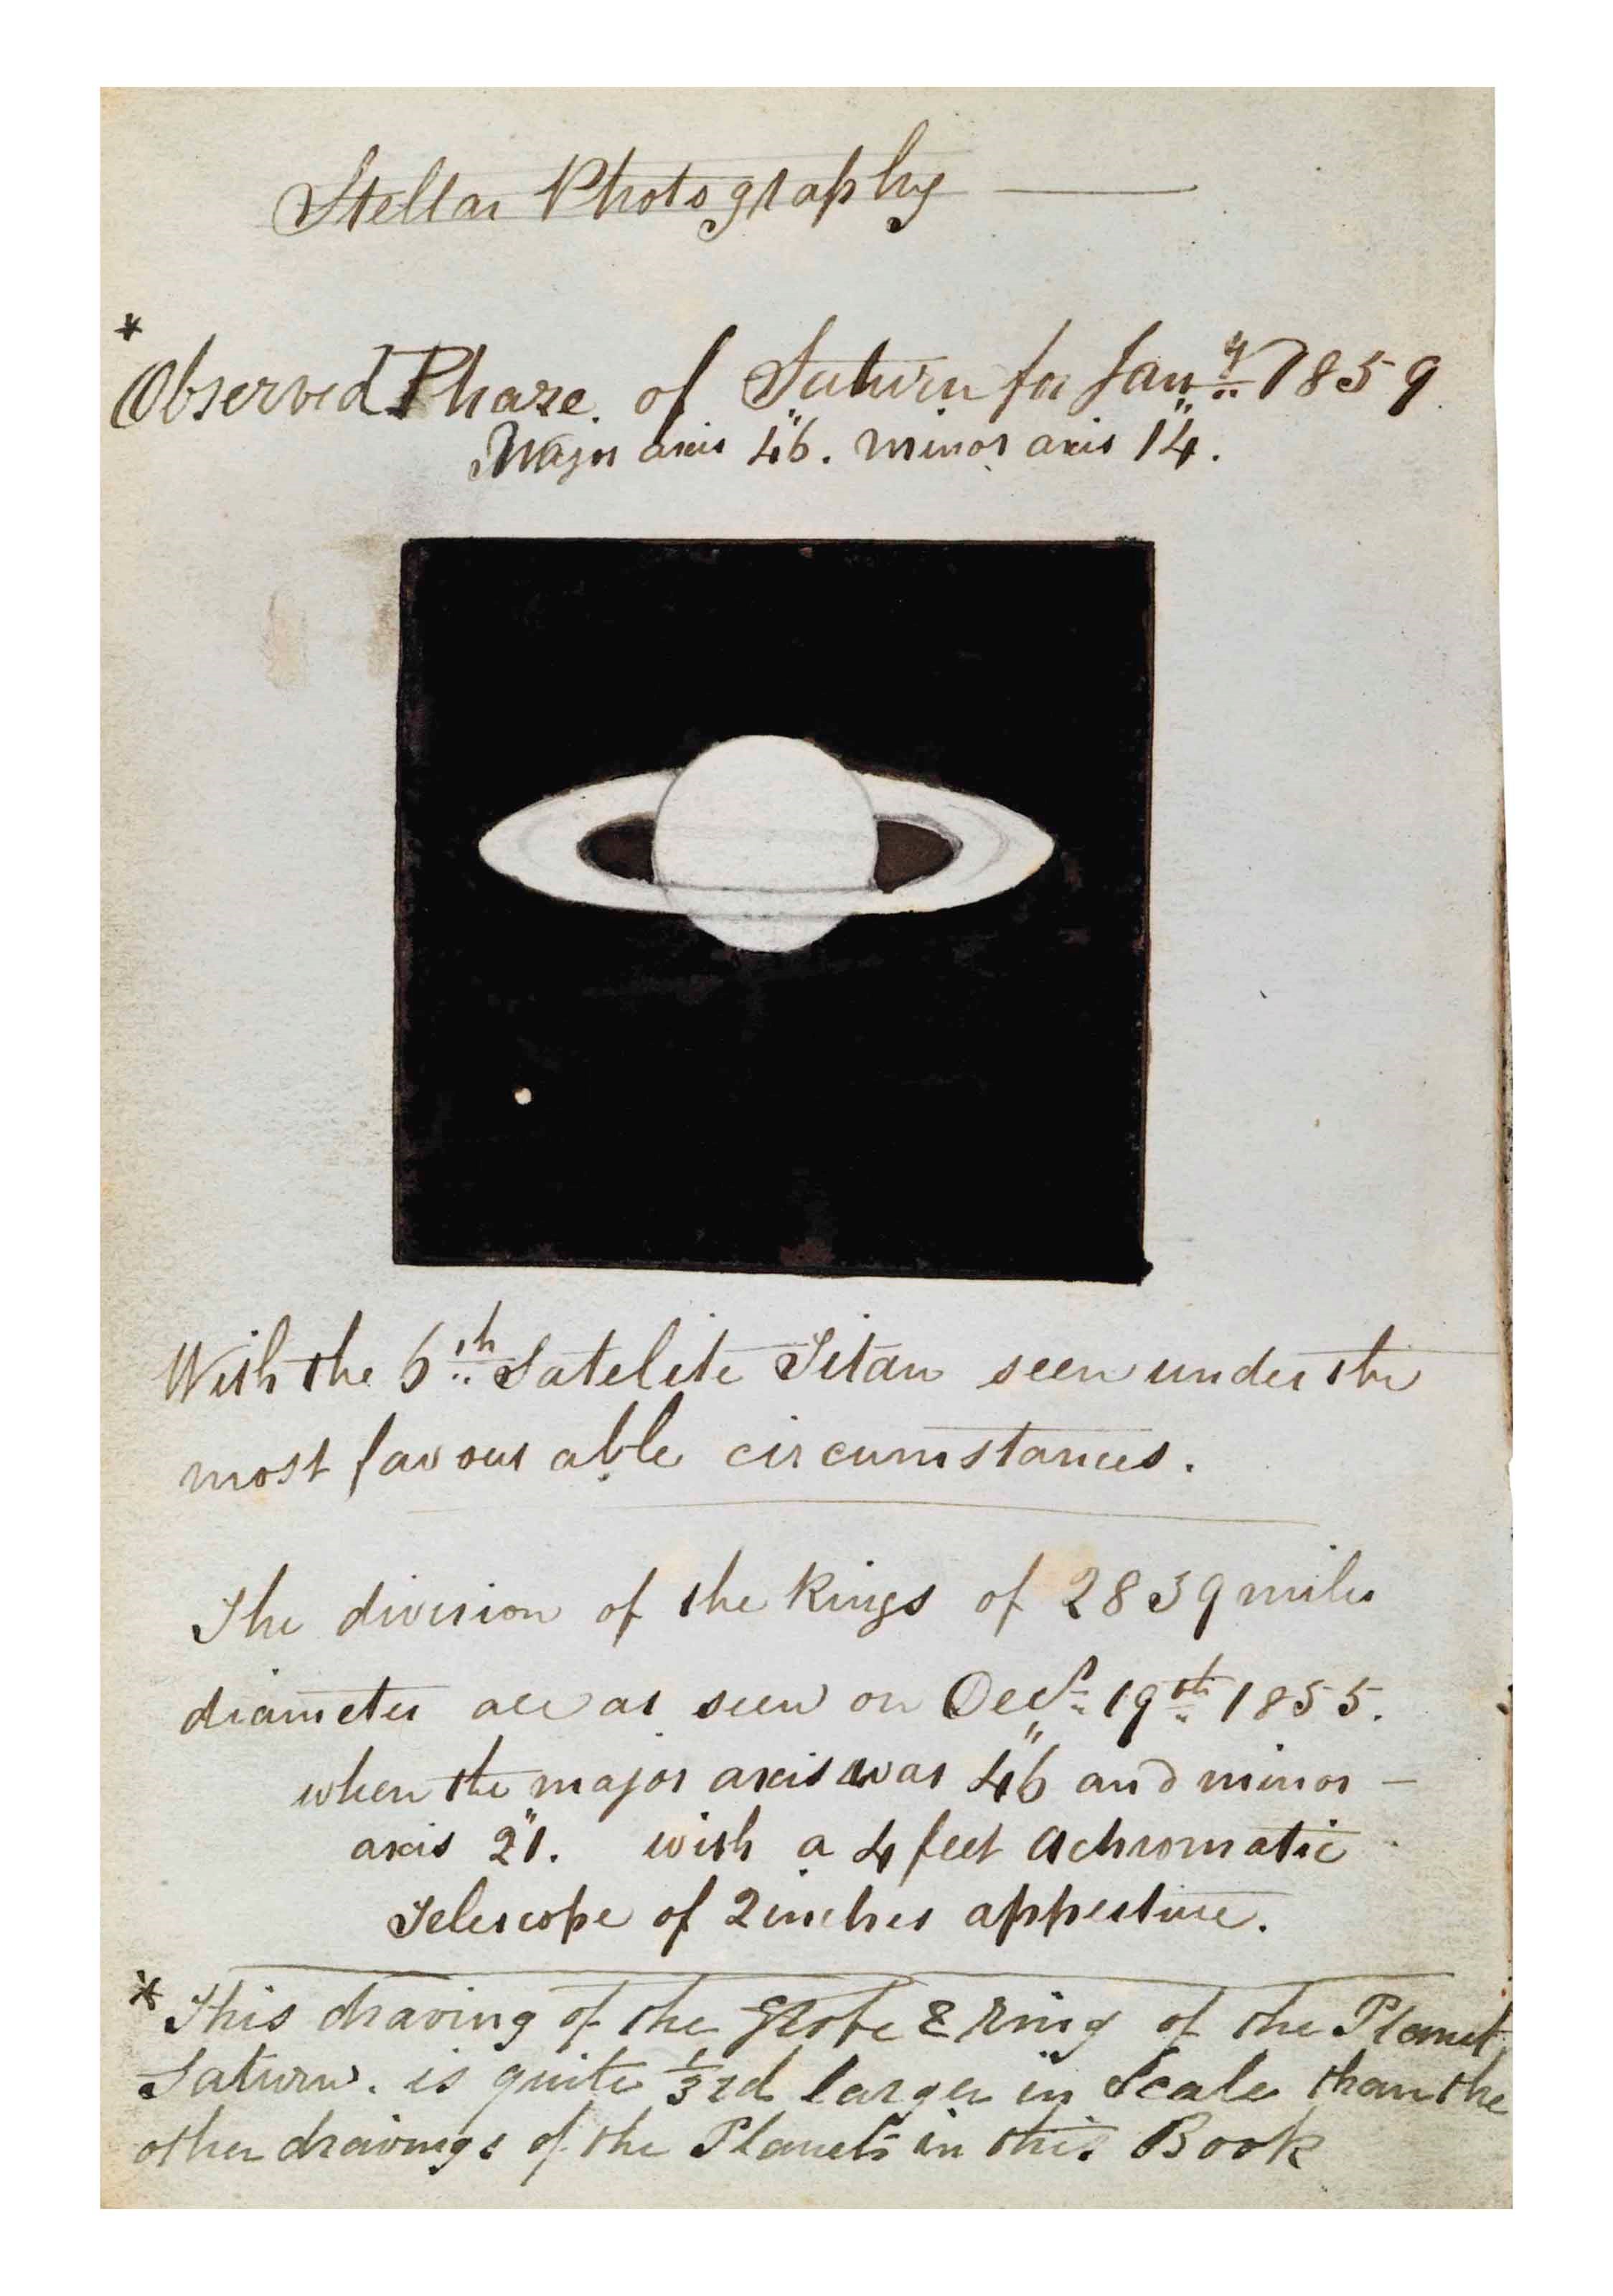 Stellar Photography —
* Observed Phase. of Saturn for Jany. 1859
Major axis 46". minor axis 14".
With the 6th Satelite Titan seen under the
most favourable circumstances.
The division of the Rings of 2839 miles
diameter are as seen on Decr. 19th 1855.
when the major axis was 46" and minor —
axis 21". with a 4 feet Achromatic
Telescope of 2 inches apperture.
* This drawing of the Globe & Ring of the Planet
Saturn. is quite ⅓rd larger in Scale than the
other drawings of the Planets in this Book